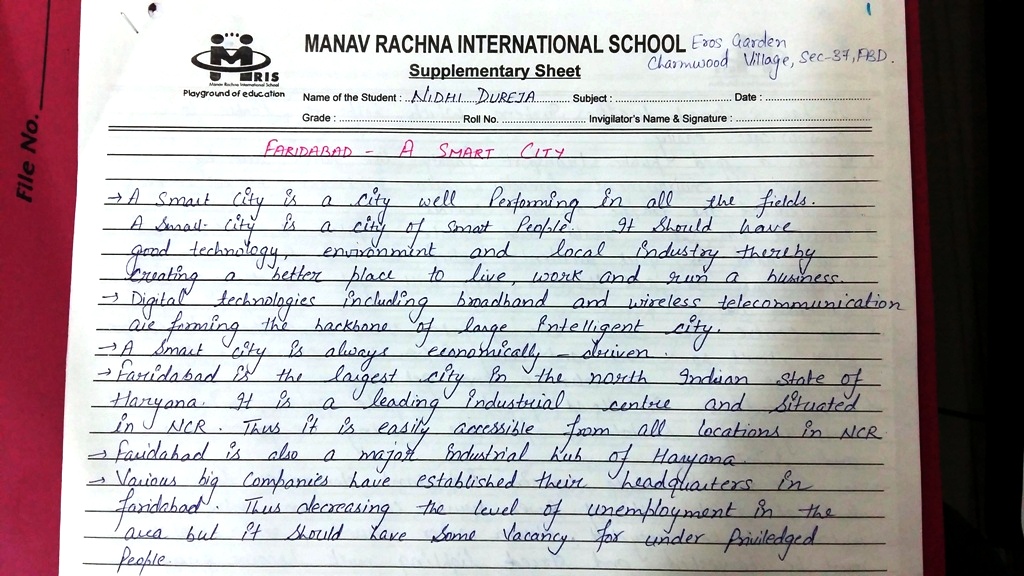 File No.
1
MRIS
Manav Rachna International School
Playground of education
MANAV RACHNA INTERNATIONAL SCHOOL Eros Garden
Charmwood Village, Sec-37, FBD.
Supplementary Sheet
Name of the Student : NIDHI DUREJA Subject : Date :
Grade : Roll No. Invigilator's Name & Signature :
FARIDABAD - A SMART CITY
→ A Smart City is a city well Performing in all the fields.
A Smart city is a city of smart People. It Should have
good technology, environment and local industry thereby
creating a better place to live, work and run a business.
→ Digital technologies including broadband and wireless telecommunication
are forming the backbone of large intelligent city.
→ A Smart city is always economically - driven.
→ Faridabad is the largest city in the north Indian state of
Haryana. It is a leading industrial centre and situated
in NCR. Thus it is easily accessible from all locations in NCR
→ Faridabad is also a major industrial hub of Haryana.
→ Various big Companies have established their headquarters in
faridabad. Thus decreasing the level of unemployment in the
area but it Should have Some Vacancy for under Priviledged
People.